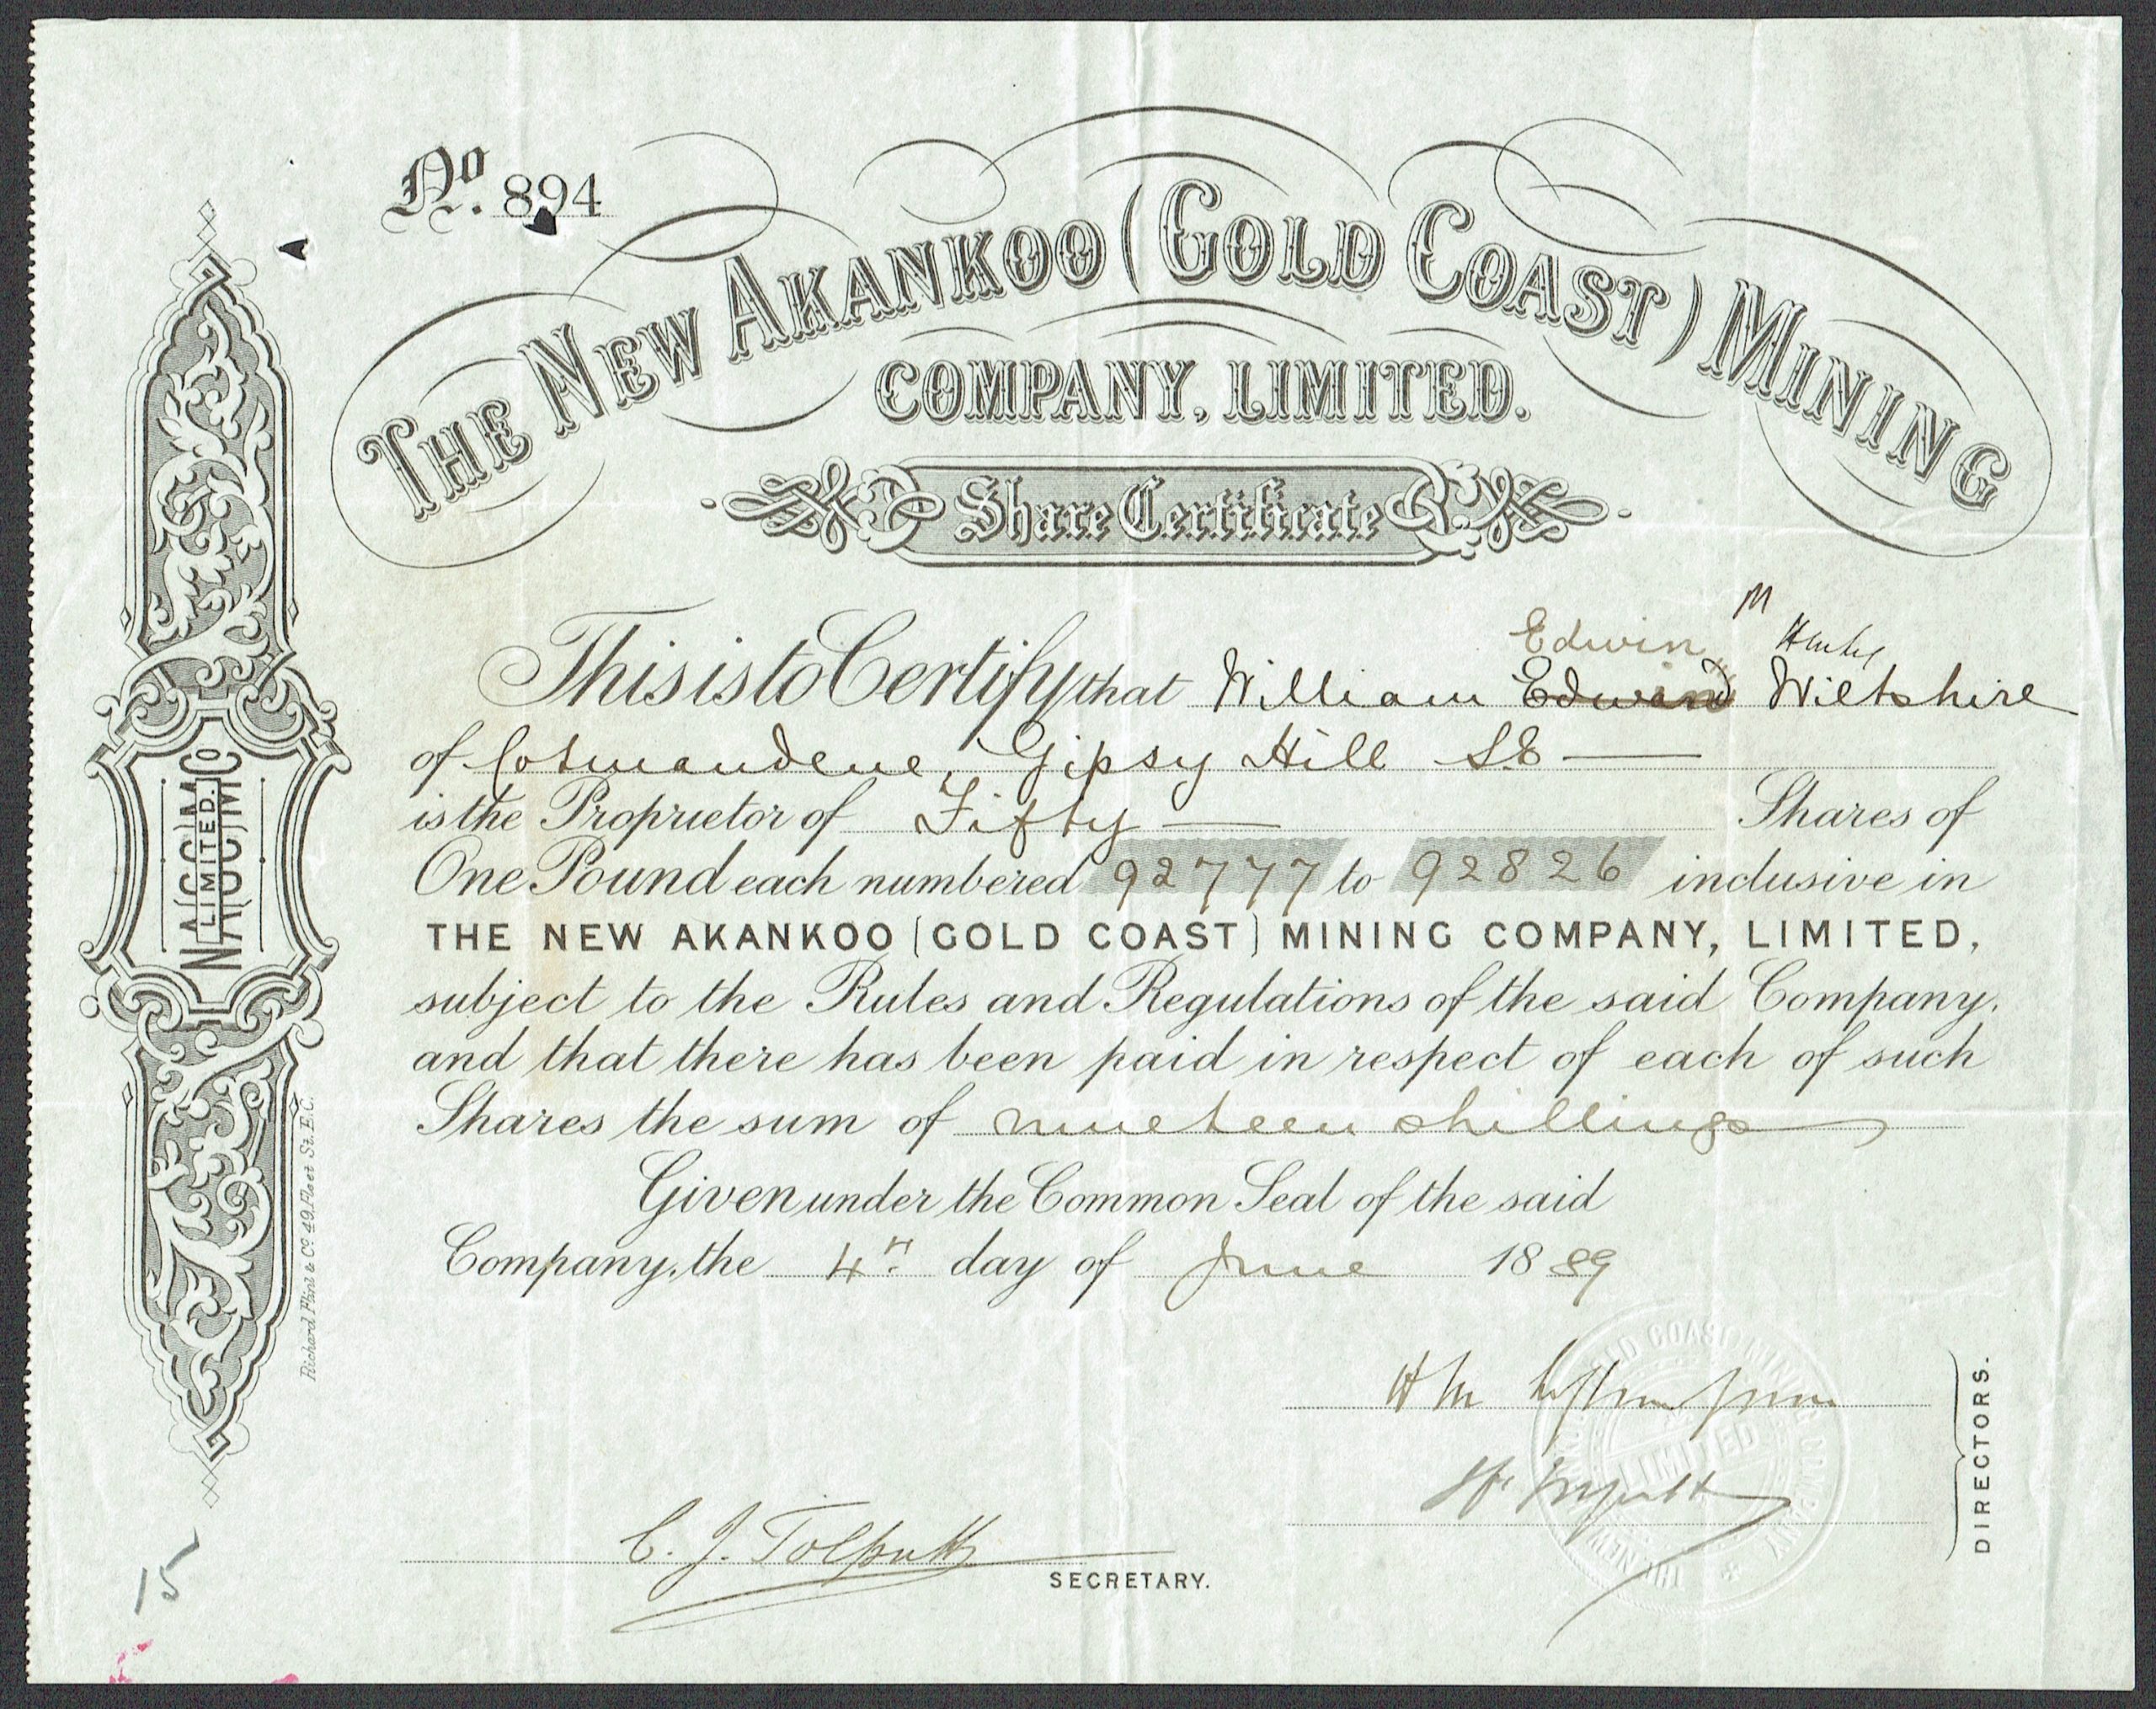 No. 894
THE NEW AKANKOO (GOLD COAST) MINING
COMPANY, LIMITED.
Share Certificate
Edwin
This is to Certify that William Edward Wiltshire
of Cotmandene, Gipsy Hill S.E
is the Proprietor of Fifty Shares of
One Pound each numbered 92777 to 92826 inclusive in
THE NEW AKANKOO (GOLD COAST) MINING COMPANY, LIMITED,
subject to the Rules and Regulations of the said Company,
and that there has been paid in respect of each of such
Shares the sum of nineteen shillings
Given under the Common Seal of the said
Company, the 4th day of June 1889
DIRECTORS.
C. J. Tolputt
SECRETARY.
N A (G C) M Co
LIMITED.
Richard Flint & Co. 49, Fleet St. E.C.
15
THE NEW AKANKOO GOLD COAST MINING COMPANY
LIMITED